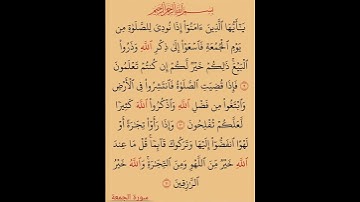 بسم الله الرحمن الرحيم
يَـٰٓأَيُّهَا ٱلَّذِينَ ءَامَنُوٓا۟ إِذَا نُودِىَ لِلصَّلَوٰةِ مِن
يَوْمِ ٱلْجُمُعَةِ فَٱسْعَوْا۟ إِلَىٰ ذِكْرِ ٱللَّهِ وَذَرُوا۟
ٱلْبَيْعَ ۚ ذَٰلِكُمْ خَيْرٌ لَّكُمْ إِن كُنتُمْ تَعْلَمُونَ
۝ فَإِذَا قُضِيَتِ ٱلصَّلَوٰةُ فَٱنتَشِرُوا۟ فِى ٱلْأَرْضِ
وَٱبْتَغُوا۟ مِن فَضْلِ ٱللَّهِ وَٱذْكُرُوا۟ ٱللَّهَ كَثِيرًا
لَّعَلَّكُمْ تُفْلِحُونَ ۝ وَإِذَا رَأَوْا۟ تِجَـٰرَةً أَوْ
لَهْوًا ٱنفَضُّوٓا۟ إِلَيْهَا وَتَرَكُوكَ قَآئِمًا ۚ قُلْ مَا عِندَ
ٱللَّهِ خَيْرٌ مِّنَ ٱللَّهْوِ وَمِنَ ٱلتِّجَـٰرَةِ ۚ وَٱللَّهُ خَيْرُ
ٱلرَّٰزِقِينَ ۝
سورة الجمعة